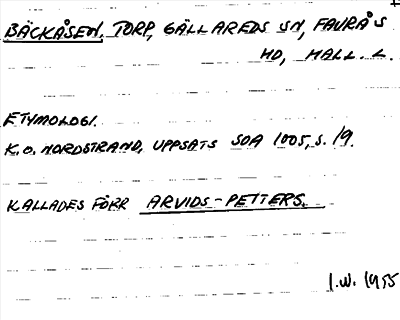 BÄCKÅSEN, TORP, GÄLLAREDS SN, FAURÅS
HD, HALL. L.
ETYMOLOGI.
K.O. NORDSTRAND, UPPSATS SOA 1005, S. 19.
KALLADES FÖRR ARVIDS-PETTERS.
I.W. 1955